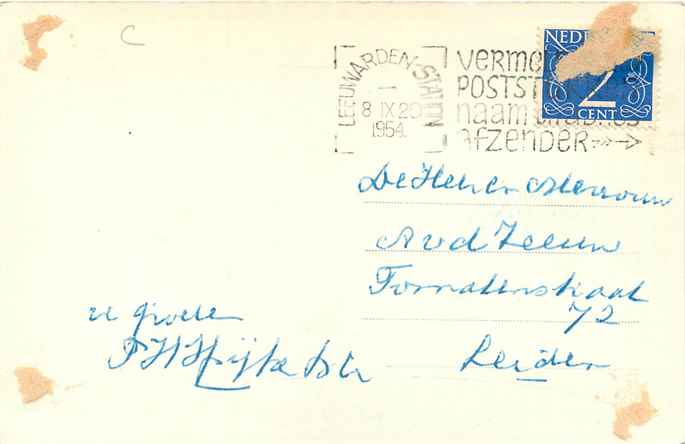 C
LEEUWARDEN-STATION
8 IX 20
1954
verme
POSTST
naam
afzender
NEDE
2
CENT
De Heer en Mevrouw
A v d Zeeuw
straat
72
Leiden
groeten